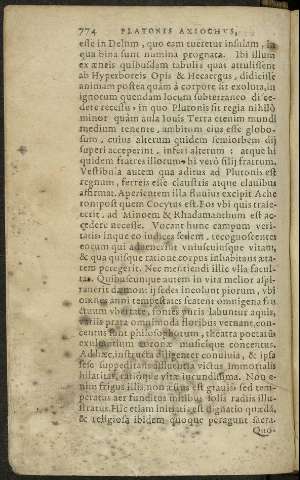 774 PLATONIS AXIOCHVS,
esse in Delum, quo eam tueretur insulam, in
qua bina sunt numina prognata. Ibi illum
ex æneis quibusdam tabulis quas attulissent
ab Hyperboreis Opis & Hecaergus, didicisse
animam postea quàm à corpore sit exoluta, in
ignotum quendam locum subterraneo disce-
dere recessu, in quo Plutonis sit regia nihilò
minor quàm aula Iouis Terra etenim mundi
medium tenente, ambitum eius esse globo-
sum, cuius alterum quidem semiorbem dij
superi acceperint, inferi alterum: atque hi
quidem fratres illorum, hi verò filij fratrum.
Vestibula autem qua aditus ad Plutonis est
regnum, ferreis esse claustris atque clauibus
affirmat. Aperientem illa fluuius excipit Ache
ron: post quem Cocytus est. Eos vbi quis traie-
cerit, ad Minoem & Rhadamanthum est ac-
cedere necesse. Vocant hunc campum veri-
tatis: inque eo iudices sedent, recognoscentes
eorum qui aduenerint vniuscuiusque vitam,
& qua quisque ratione corpus inhabitans æta-
tem peregerit. Nec mentiendi illic vlla facul-
tas. Quibuscunque autem in vita melior aspi-
rauerit dæmon: ij sedes incolunt piorum, vbi
omnes anni tempestates scatent omnigena fru
ctuum vbertate, fontes puris labuntur aquis,
variis prata omnimoda floribus vernant, con-
uentus sunt philosophorum, theatra poetarum
musiceque concentus.
Ad hæc, instructa diligenter conuiuia, & ipsa
sese suppeditans affluentia victus immortalis
hilaritas, ratioque vitæ iucundissima. Non e-
nim frigus illis non æstus est grauis: sed tem-
peratus aer funditur mitibus solis radiis illu-
stratus. Hîc etiam initiatis est dignatio quædã,
& religiosa ibidem quoque peragunt sacra.
Quo-